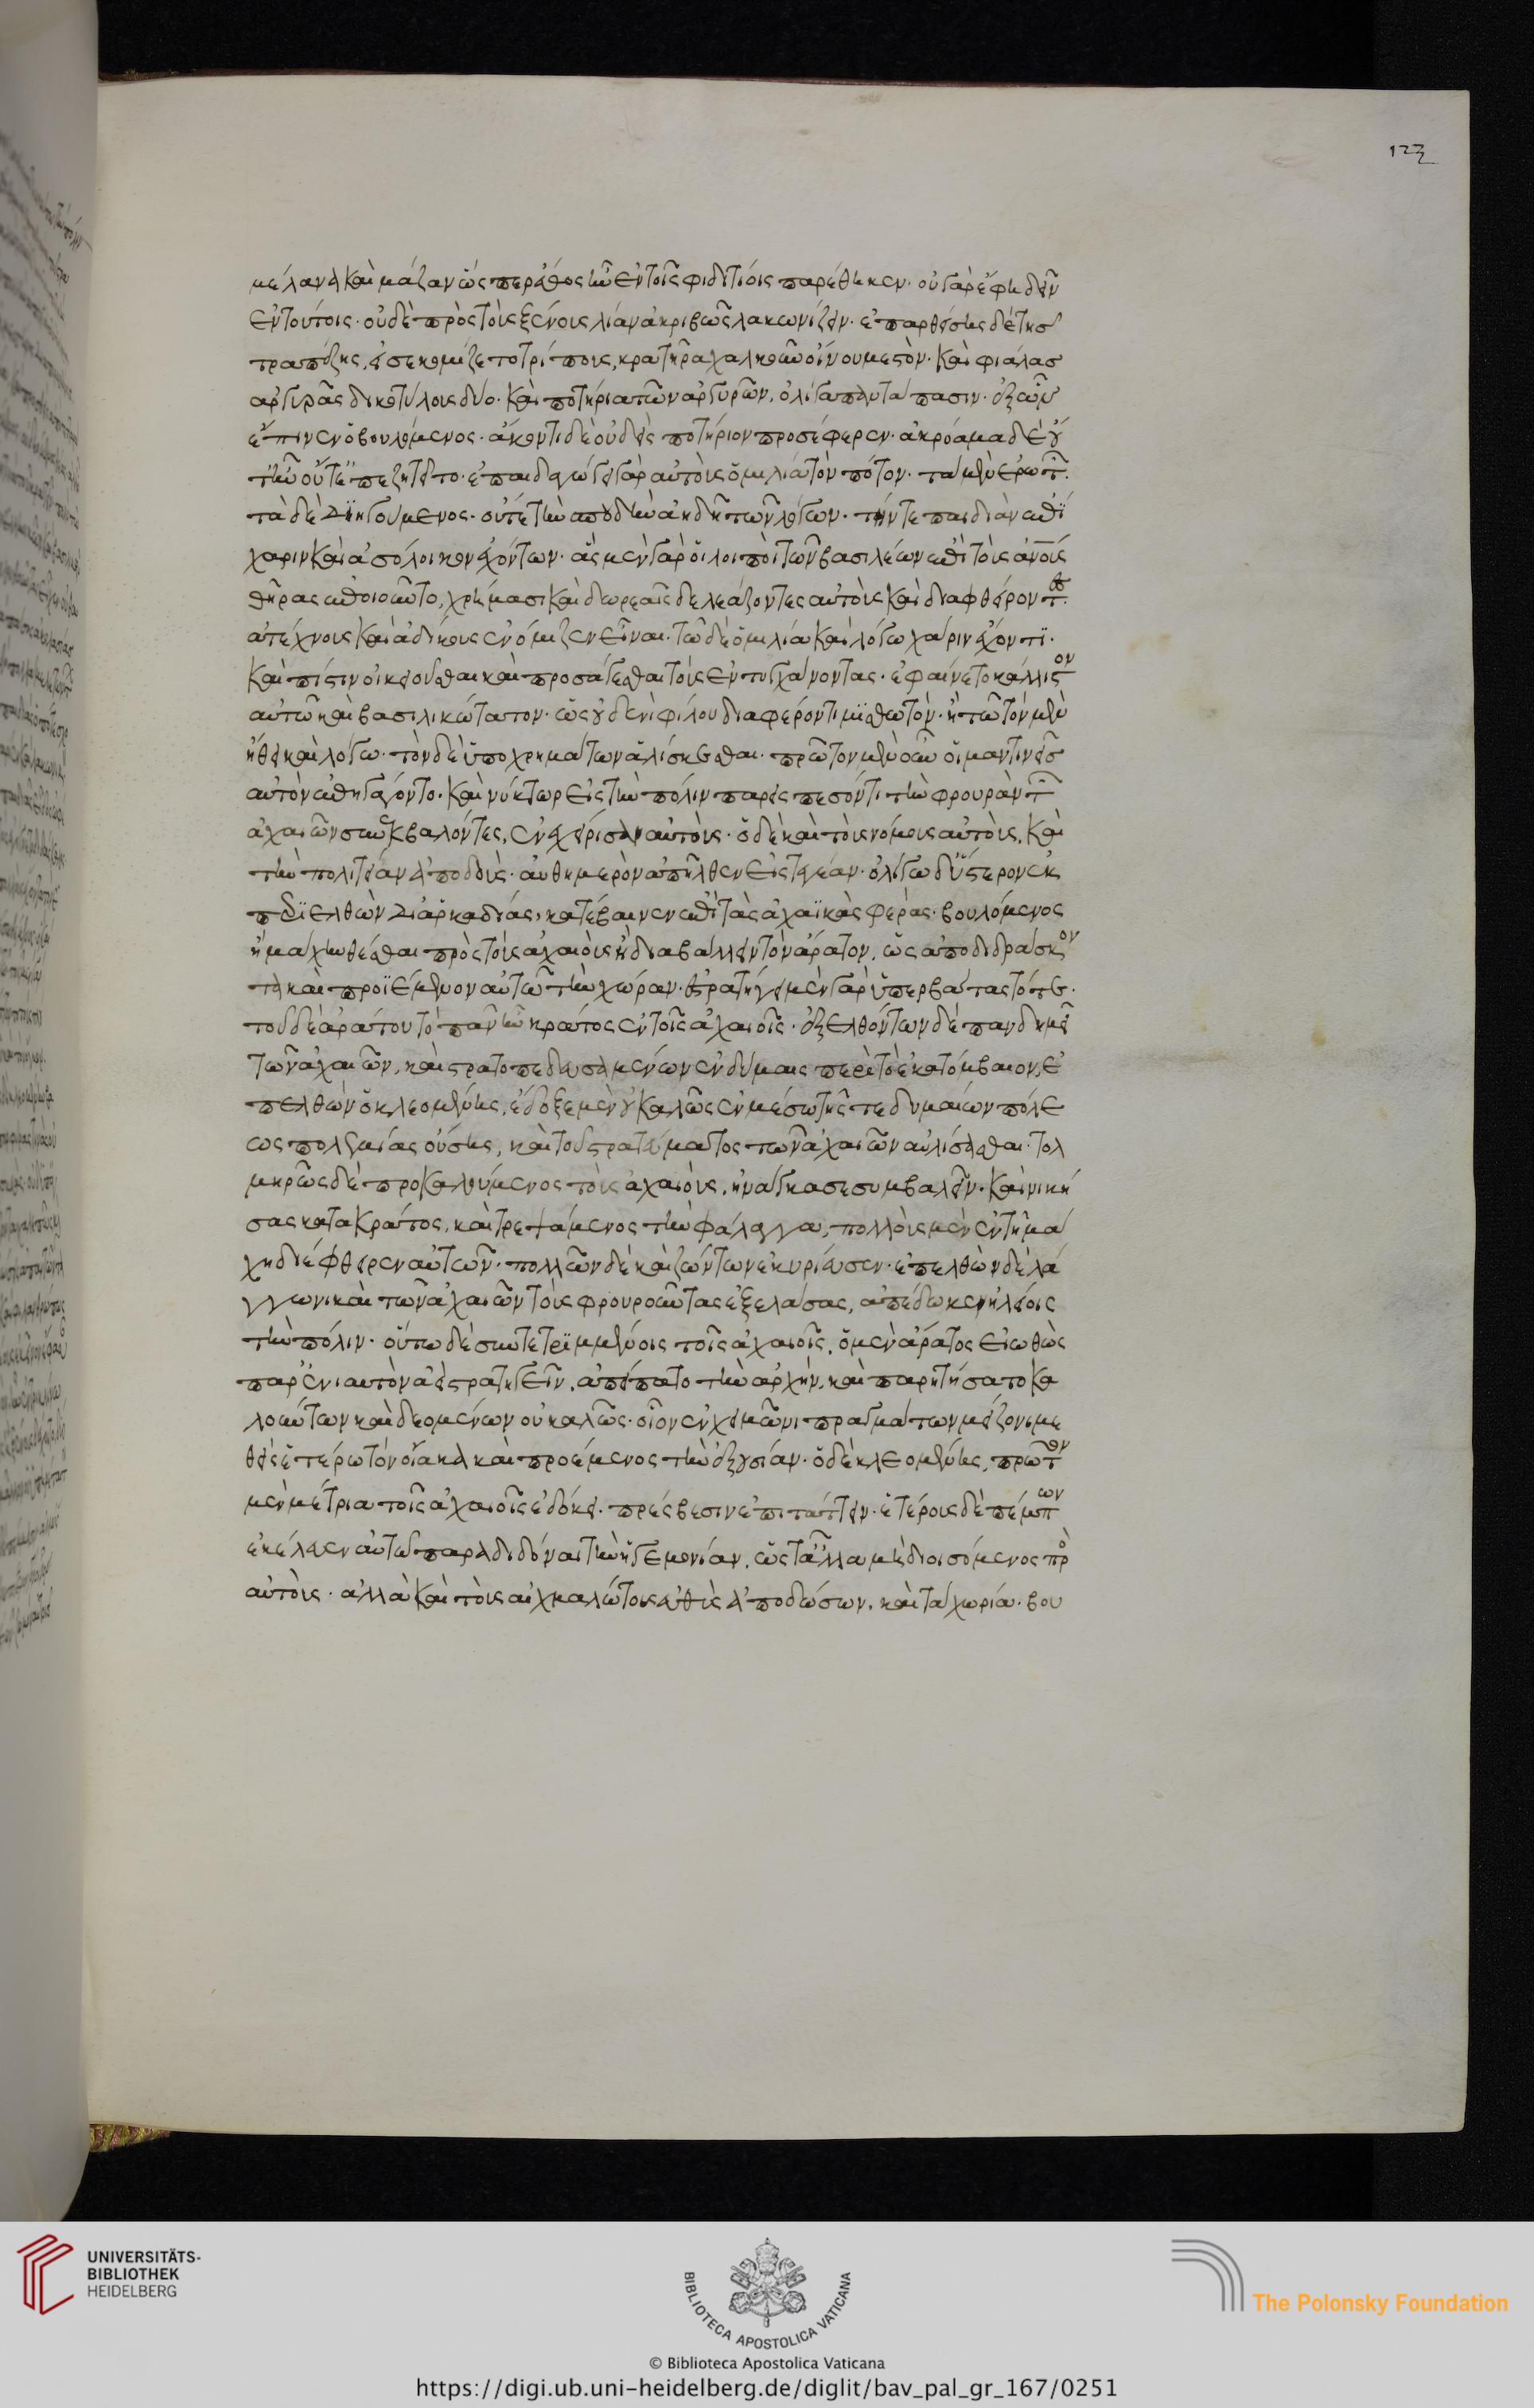 μέλανα καὶ μάζαν ὥσπερ ἔθος ἦν ἐν τοῖς φιδιτίοις παρέθηκεν· οὐ γὰρ ἔφη δεῖν
ἐν τούτοις· οὐδὲ πρὸς τοὺς ξένους λίαν ἀκριβῶς λακωνίζειν· ἐπαρθείσης δὲ τῆς
τραπέζης, εἰσεκομίζετο τρίπους, κρατῆρα χαλκοῦν οἴνου μεστὸν· καὶ φιάλας
ἀργυρᾶς δικοτύλους δύο· καὶ ποτήρια τῶν ἀργυρῶν, ὀλίγα παντάπασιν· ἐξ ὧν
ἔπινεν ὁ βουλόμενος· ἄκοντι δὲ οὐδεὶς ποτήριον προσέφερεν· ἀκρόαμα δὲ οὔ
τ' ἦν οὔτ' ἐπεζητεῖτο· ἐπαιδαγώγει γὰρ αὐτὸς ὁμιλία τὸν πότον· τὰ μὲν ἐρωτῶν
τὰ δὲ διηγούμενος· οὔτε τὴν σπουδὴν ἀηδῆ τῶν λόγων· τήν τε παιδιὰν ἐπί
χαριν καὶ ἀσόλοικον ἐχόντων· ἃς μὲν γὰρ οἱ λοιποὶ τῶν βασιλέων ἐπὶ τοὺς ἀνους
θήρας ἐποιοῦντο, χρήμασι καὶ δωρεαῖς δελεάζοντες αὐτοὺς καὶ διαφθείροντες
ἀτέχνους καὶ ἀδίκους ἐνόμιζεν εἶναι· τῶ δὲ ὁμιλία καὶ λόγω χάριν ἔχοντι·
καὶ πίστιν οἰκειοῦσθαι καὶ προσάγεσθαι τοὺς ἐντυγχάνοντας· ἐφαίνετο κάλλιστον
αὐτῶ καὶ βασιλικώτατον· ὡς οὐδενὶ φίλου διαφέροντι μισθωτὸν· ἢ τῶ τὸν μὲν
ἤθει καὶ λόγω· τὸν δὲ ὑπὸ χρημάτων ἁλίσκεσθαι· πρῶτον μὲν οὖν οἱ μαντινεῖς
αὐτὸν ἐπηγάγοντο· καὶ νύκτωρ εἰς τὴν πόλιν παρεισπεσόντι τὴν φρουρὰν τῶν
ἀχαιῶν συνεκβαλόντες, ἐνεχείρισαν αὑτοὺς· ὁ δὲ καὶ τοὺς νόμους αὐτοῖς, καὶ
τὴν πολιτείαν ἀποδοὺς· αὐθημερὸν ἀπῆλθεν εἰς τεγέαν· ὀλίγω δ' ὕστερον ἐκ
περιελθὼν δι' ἀρκαδίας, κατέβαινεν ἐπὶ τὰς ἀχαϊκὰς φερὰς· βουλόμενος
ἢ μάχην θέσθαι πρὸς τοὺς ἀχαιοὺς ἢ διαβάλλειν τὸν ἄρατον, ὡς ἀποδιδράσκον
τα καὶ προϊέμενον αὐτῶ τὴν χώραν· ἐστρατήγει μὲν γὰρ ὑπερβάτας τότε·
τοῦ δὲ ἀράτου τὸ πᾶν ἦν κράτος ἐν τοῖς ἀχαιοῖς· ἐξελθόντων δὲ πανδημεὶ
τῶν ἀχαιῶν, καὶ στρατοπεδευσαμένων ἐν δύμαις περὶ τὸ ἑκατόμβαιον, ἐ
πελθὼν ὁ κλεομένης, ἔδοξε μὲν οὐ καλῶς ἐν μέσω τῆς τε δυμαίων πόλε
ως πολεμίας οὔσης, καὶ τοῦ στρατεύματος τῶν ἀχαιῶν αὐλίσασθαι· τολ
μηρῶς δὲ προκαλούμενος τοὺς ἀχαιοὺς, ἠνάγκασε συμβαλεῖν· καὶ νικη
σας κατακράτος, καὶ τρεψάμενος τὴν φάλαγγα, πολλοὺς μὲν ἐν τῆ μά
χη διέφθειρεν αὐτῶν· πολλῶν δὲ καὶ ζώντων ἐκυρίευσεν· ἐπελθὼν δὲ λά
γγωνι καὶ τῶν ἀχαιῶν τοὺς φρουροῦντας ἐξελάσας, ἀπέδωκεν ἠλείοις
τὴν πόλιν· οὕτω δὲ συντετριμμένοις τοῖς ἀχαιοῖς, ὁ μὲν ἄρατος εἰωθὼς
παρ' ἐνιαυτὸν ἀεὶ στρατηγεῖν, ἀπείπατο τὴν ἀρχὴν, καὶ παρητήσατο κα
λούντων καὶ δεομένων οὐ καλῶς· οἷον ἐν χειμῶνι πραγμάτων μείζονι με
θεὶς ἑτέρω τὸν οἴακα καὶ προέμενος τὴν ἐξουσίαν· ὁ δὲ κλεομένης, πρῶτον
μὲν μέτρια τοῖς ἀχαιοῖς ἐδόκει· πρέσβεσιν ἐπιτάττειν· ἑτέρους δὲ πέμπων
ἐκέλευεν αὐτῶ παραδιδόναι τὴν ἡγεμονίαν, ὡς τἄλλα μὴ διοισόμενος πρὸς
αὐτοὺς· ἀλλὰ καὶ τοὺς αἰχμαλώτους εὐθὺς ἀποδώσων, καὶ τὰ χωρία· βου
UNIVERSITÄTS-
BIBLIOTHEK
HEIDELBERG
BIBLIOTECA APOSTOLICA VATICANA
The Polonsky Foundation
© Biblioteca Apostolica Vaticana
https://digi.ub.uni-heidelberg.de/diglit/bav_pal_gr_167/0251